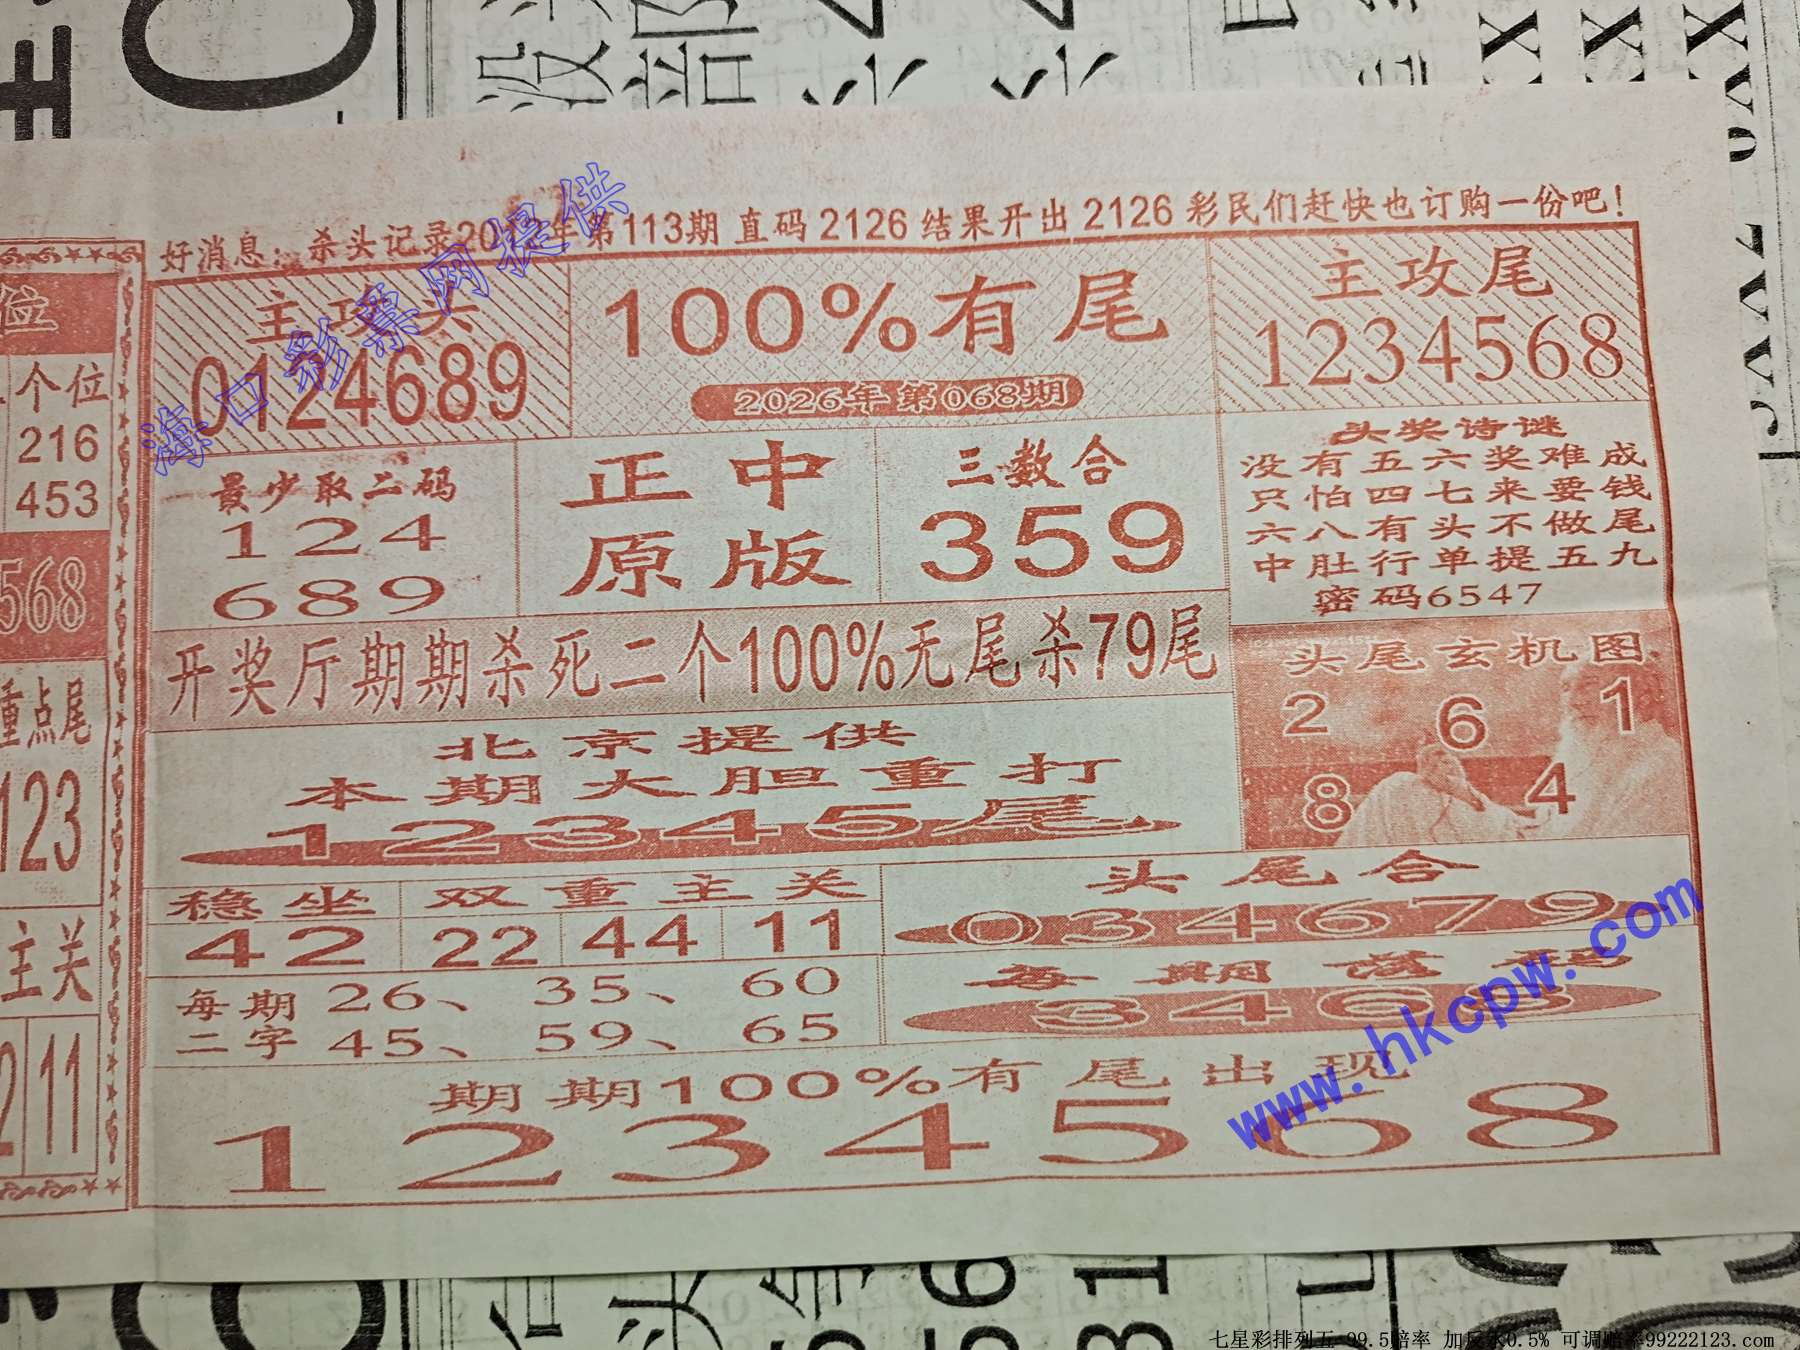 好消息：杀头记录20 年第113期 直码 2126 结果开出 2126 彩民们赶快也订购一份吧！
主攻头
0124689
100%有尾
2026年第068期
主攻尾
1234568
最少取二码
124
689
正中
原版
三数合
359
头奖诗谜
没有五六奖难成
只怕四七来要钱
六八有头不做尾
中肚行单提五九
密码6547
开奖厅期期杀死二个100%无尾杀79尾
头尾玄机图
2 6 1
8 4
北京提供
本期大胆重打
12345尾
稳坐
42
双重主关
22 44 11
头尾合
034679
每期
3468
每期二字
26、 35、 60
45、 59、 65
期期100%有尾出现
1234568
位
个位
216
453
568
重点尾
123
主关
2 11
海口彩票网提供
www.hkcpw.com
七星彩排列五 99.5赔率 加反水0.5% 可调赔率99222123.com